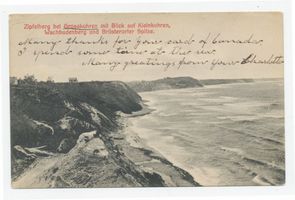 Zipfelberg bei Grosskuhren mit Blick auf Kleinkuhren,
Wachbudenberg und Brüsterorter Spitze.
Many thanks for your card of
I spend some time at the sea.
Many greetings from your Charlotte